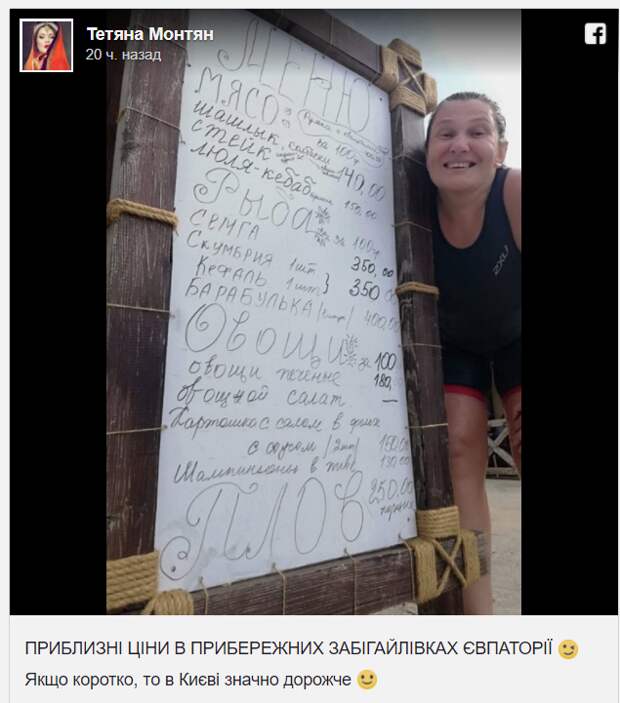 Тетяна Монтян
20 ч. назад
МЕНЮ
МЯСО
за 100 г
шашлык,
стейк 140,00
люля-кебаб 150,00
Рыба
за 100 г
СЕМГА 350,00
Скумбрия 1 шт
Кефаль 1 шт } 350
БАРАБУЛЬКА 400,00
Овощи за 100
овощи печеные 180,
овощной салат —
Картошка с салом в
с соусом 150,00
Шампиньоны в 130,00
ПЛОВ 250,00
ZKU
ПРИБЛИЗНІ ЦІНИ В ПРИБЕРЕЖНИХ ЗАБІГАЙЛІВКАХ ЄВПАТОРІЇ 😉
Якщо коротко, то в Києві значно дорожче 🙂